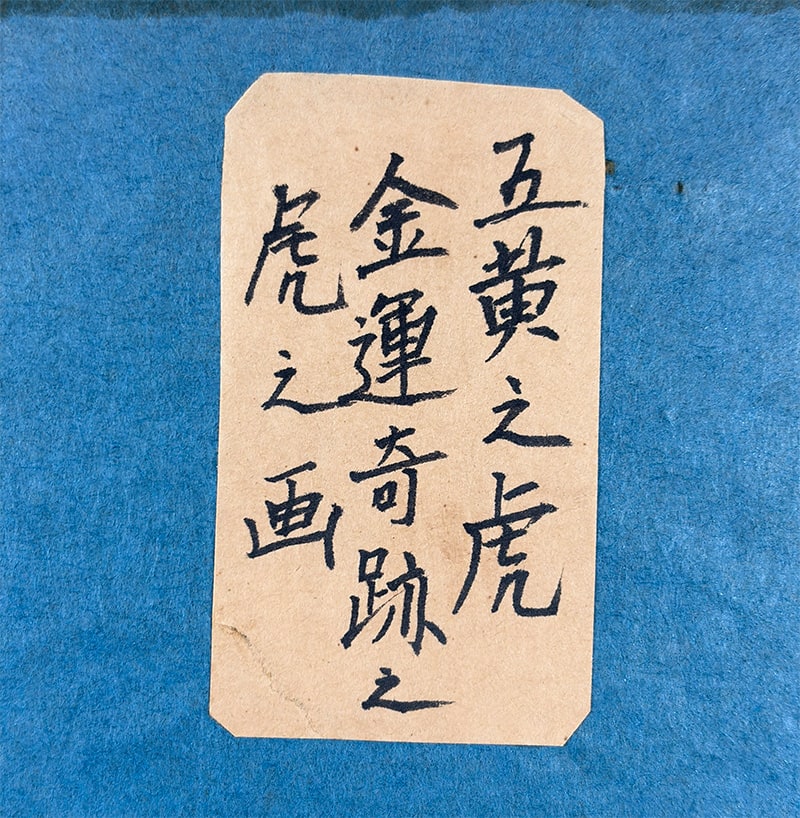 五黄之虎
金運奇跡之
虎之画